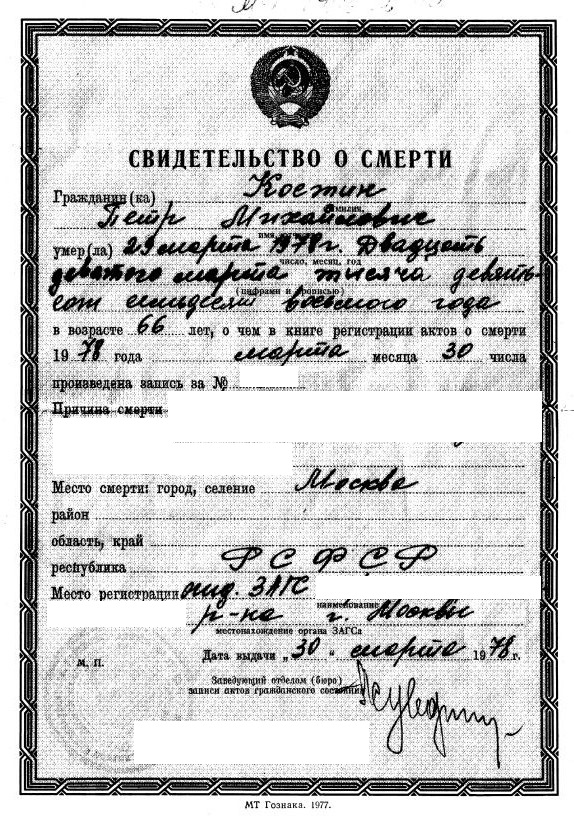 СВИДЕТЕЛЬСТВО О СМЕРТИ
Гражданин(ка) Костин
фамилия,
Петр Михайлович
умер(ла) 29 марта 1978 г. Двадцать
число, месяц, год
девятого марта тысяча девять-
(цифрами и прописью)
сот семьдесят восьмого года
в возрасте 66 лет, о чем в книге регистрации актов о смерти
1978 года марта месяца 30 числа
произведена запись за №
Причина смерти
Место смерти: город, селение Москва
район
область, край
республика РСФСР
Место регистрации отд. ЗАГС
наименование
р-на г. Москвы
местонахождение органа ЗАГСа
Дата выдачи „30“ марта 1978 г.
М. П.
Заведующий отделом (бюро)
записи актов гражданского состояния
МТ Гознака. 1977.